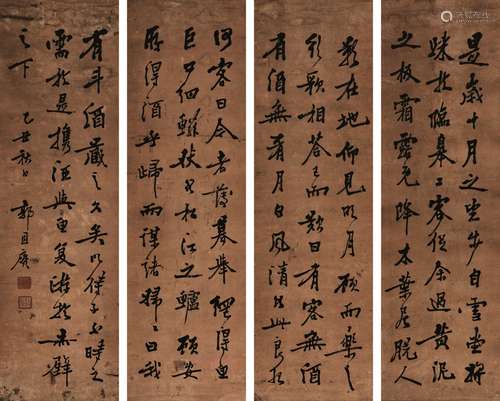 是歲十月之望步自雪堂將
歸於臨皋二客從余過黃泥
之坂霜露既降木葉盡脫人
影在地仰見明月顧而樂之
行歌相答已而歎曰有客無酒
有酒無肴月白風清如此良夜
何客曰今者薄暮舉網得魚
巨口細鱗狀如松江之鱸顧安
所得酒乎歸而謀諸婦婦曰我
有斗酒藏之久矣以待子不時之
需於是攜酒與魚復游於赤壁
之下
乙丑秋日